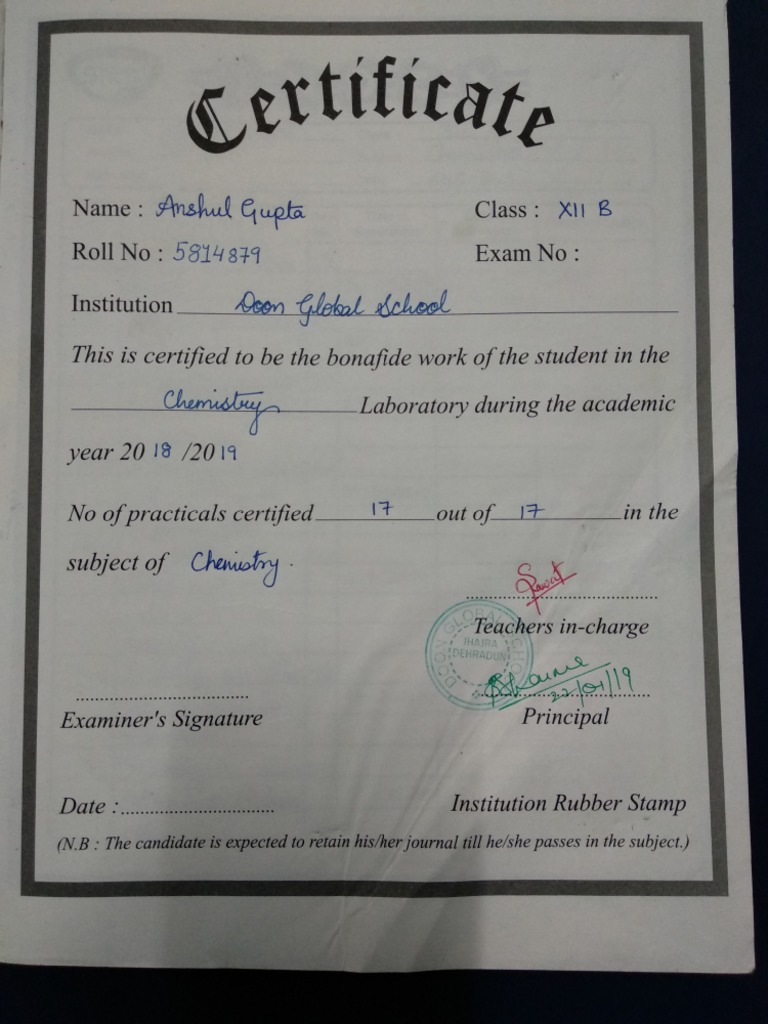 Certificate
Name : Anshul Gupta Class : XII B
Roll No : 5814879 Exam No :
Institution Doon Global School
This is certified to be the bonafide work of the student in the
Chemistry Laboratory during the academic
year 2018 /2019
No of practicals certified 17 out of 17 in the
subject of Chemistry.
Rawat
Teachers in-charge
DOON GLOBAL SCHOOL
JHAJRA
DEHRADUN
22/01/19
Examiner's Signature Principal
Date : Institution Rubber Stamp
(N.B : The candidate is expected to retain his/her journal till he/she passes in the subject.)